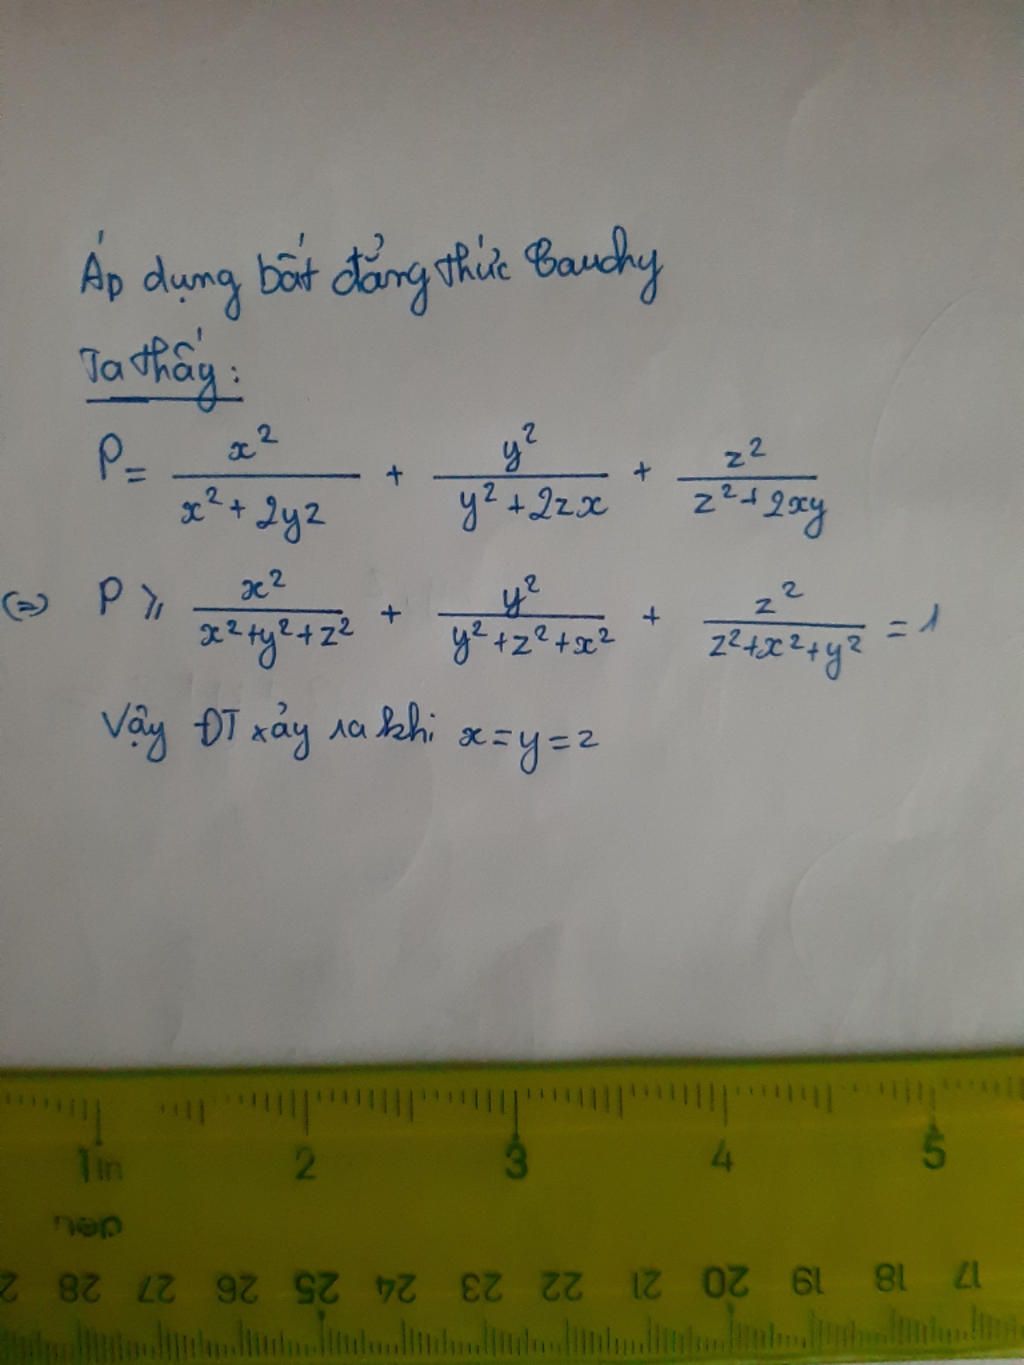 Áp dụng bất đẳng thức Cauchy
Ta thấy:
P = x²/(x² + 2yz) + y²/(y² + 2zx) + z²/(z² + 2xy)
(=) P ⩾ x²/(x²+y²+z²) + y²/(y²+z²+x²) + z²/(z²+x²+y²) = 1
Vậy ĐT xảy ra khi x=y=z
1in 2 3 4 5
deli
28 27 26 25 24 23 22 21 20 19 18 17